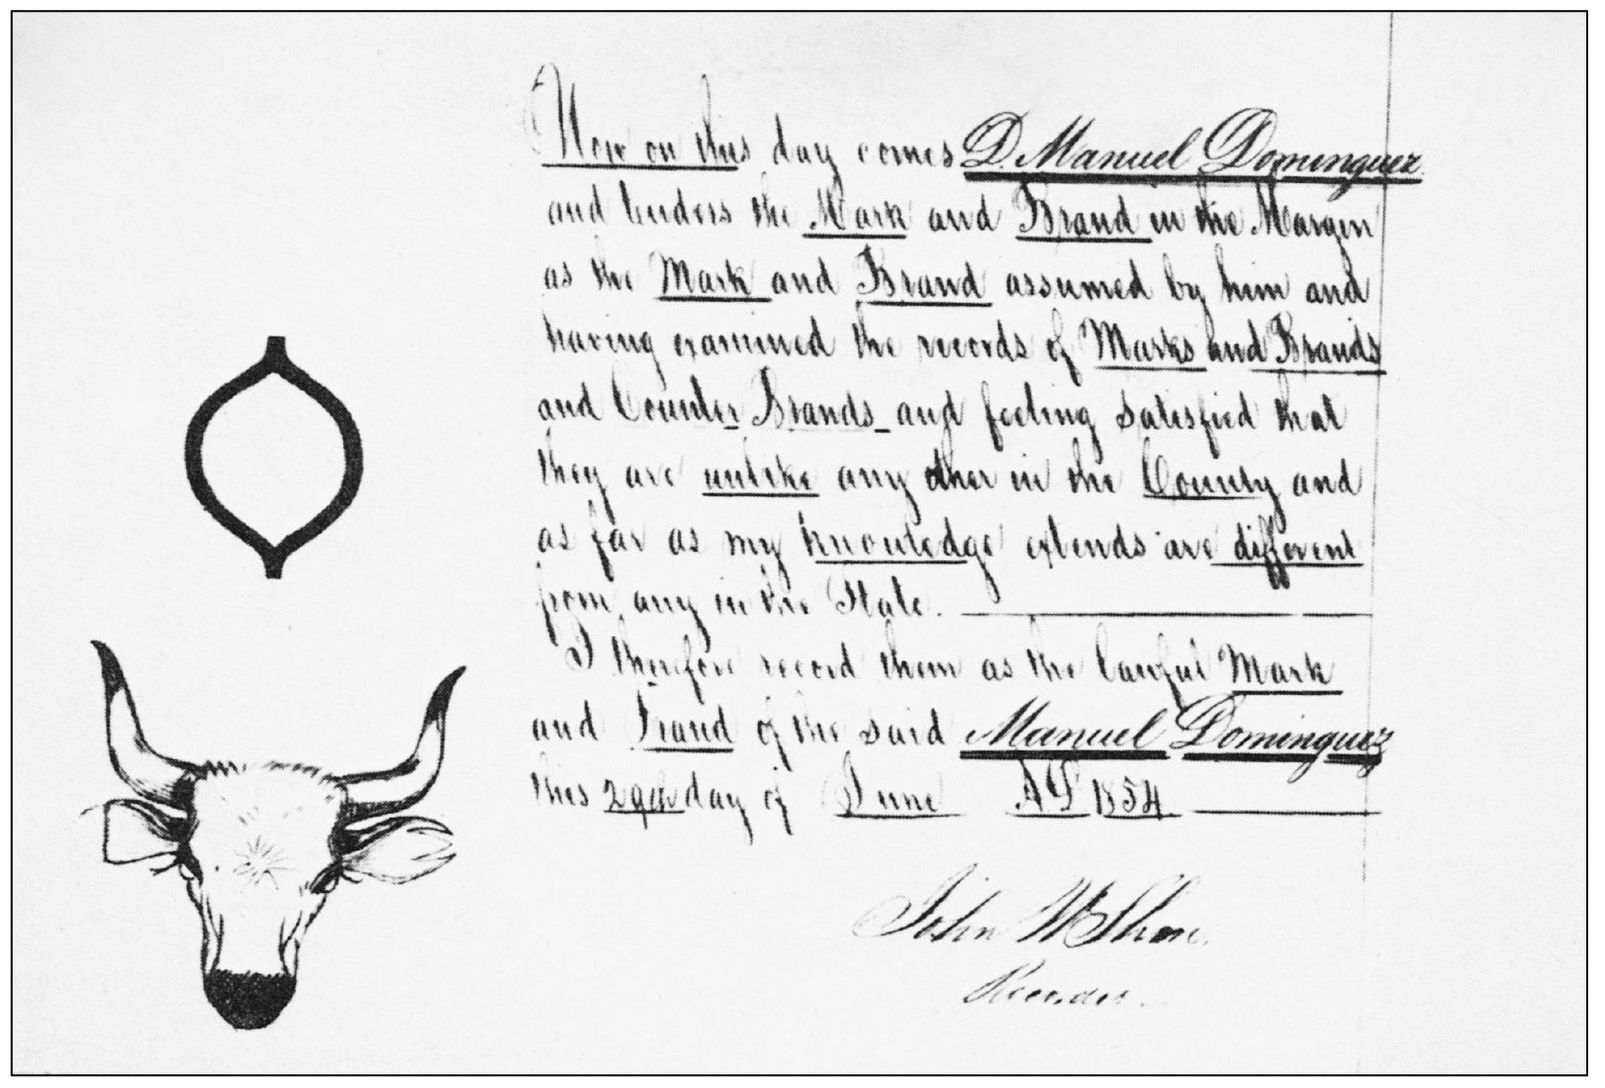 Now on this day comes D. Manuel Dominguez
and tenders the Mark and Brand in the Margin
as the Mark and Brand assumed by him and
having examined the records of Marks and Brands
and Counter Brands and feeling satisfied that
they are unlike any other in the County and
as far as my knowledge extends are different
from any in the State.
I therefore record them as the lawful Mark
and Brand of the said Manuel Dominguez
this 29th day of June AD 1854
John W Shore.
Recorder.